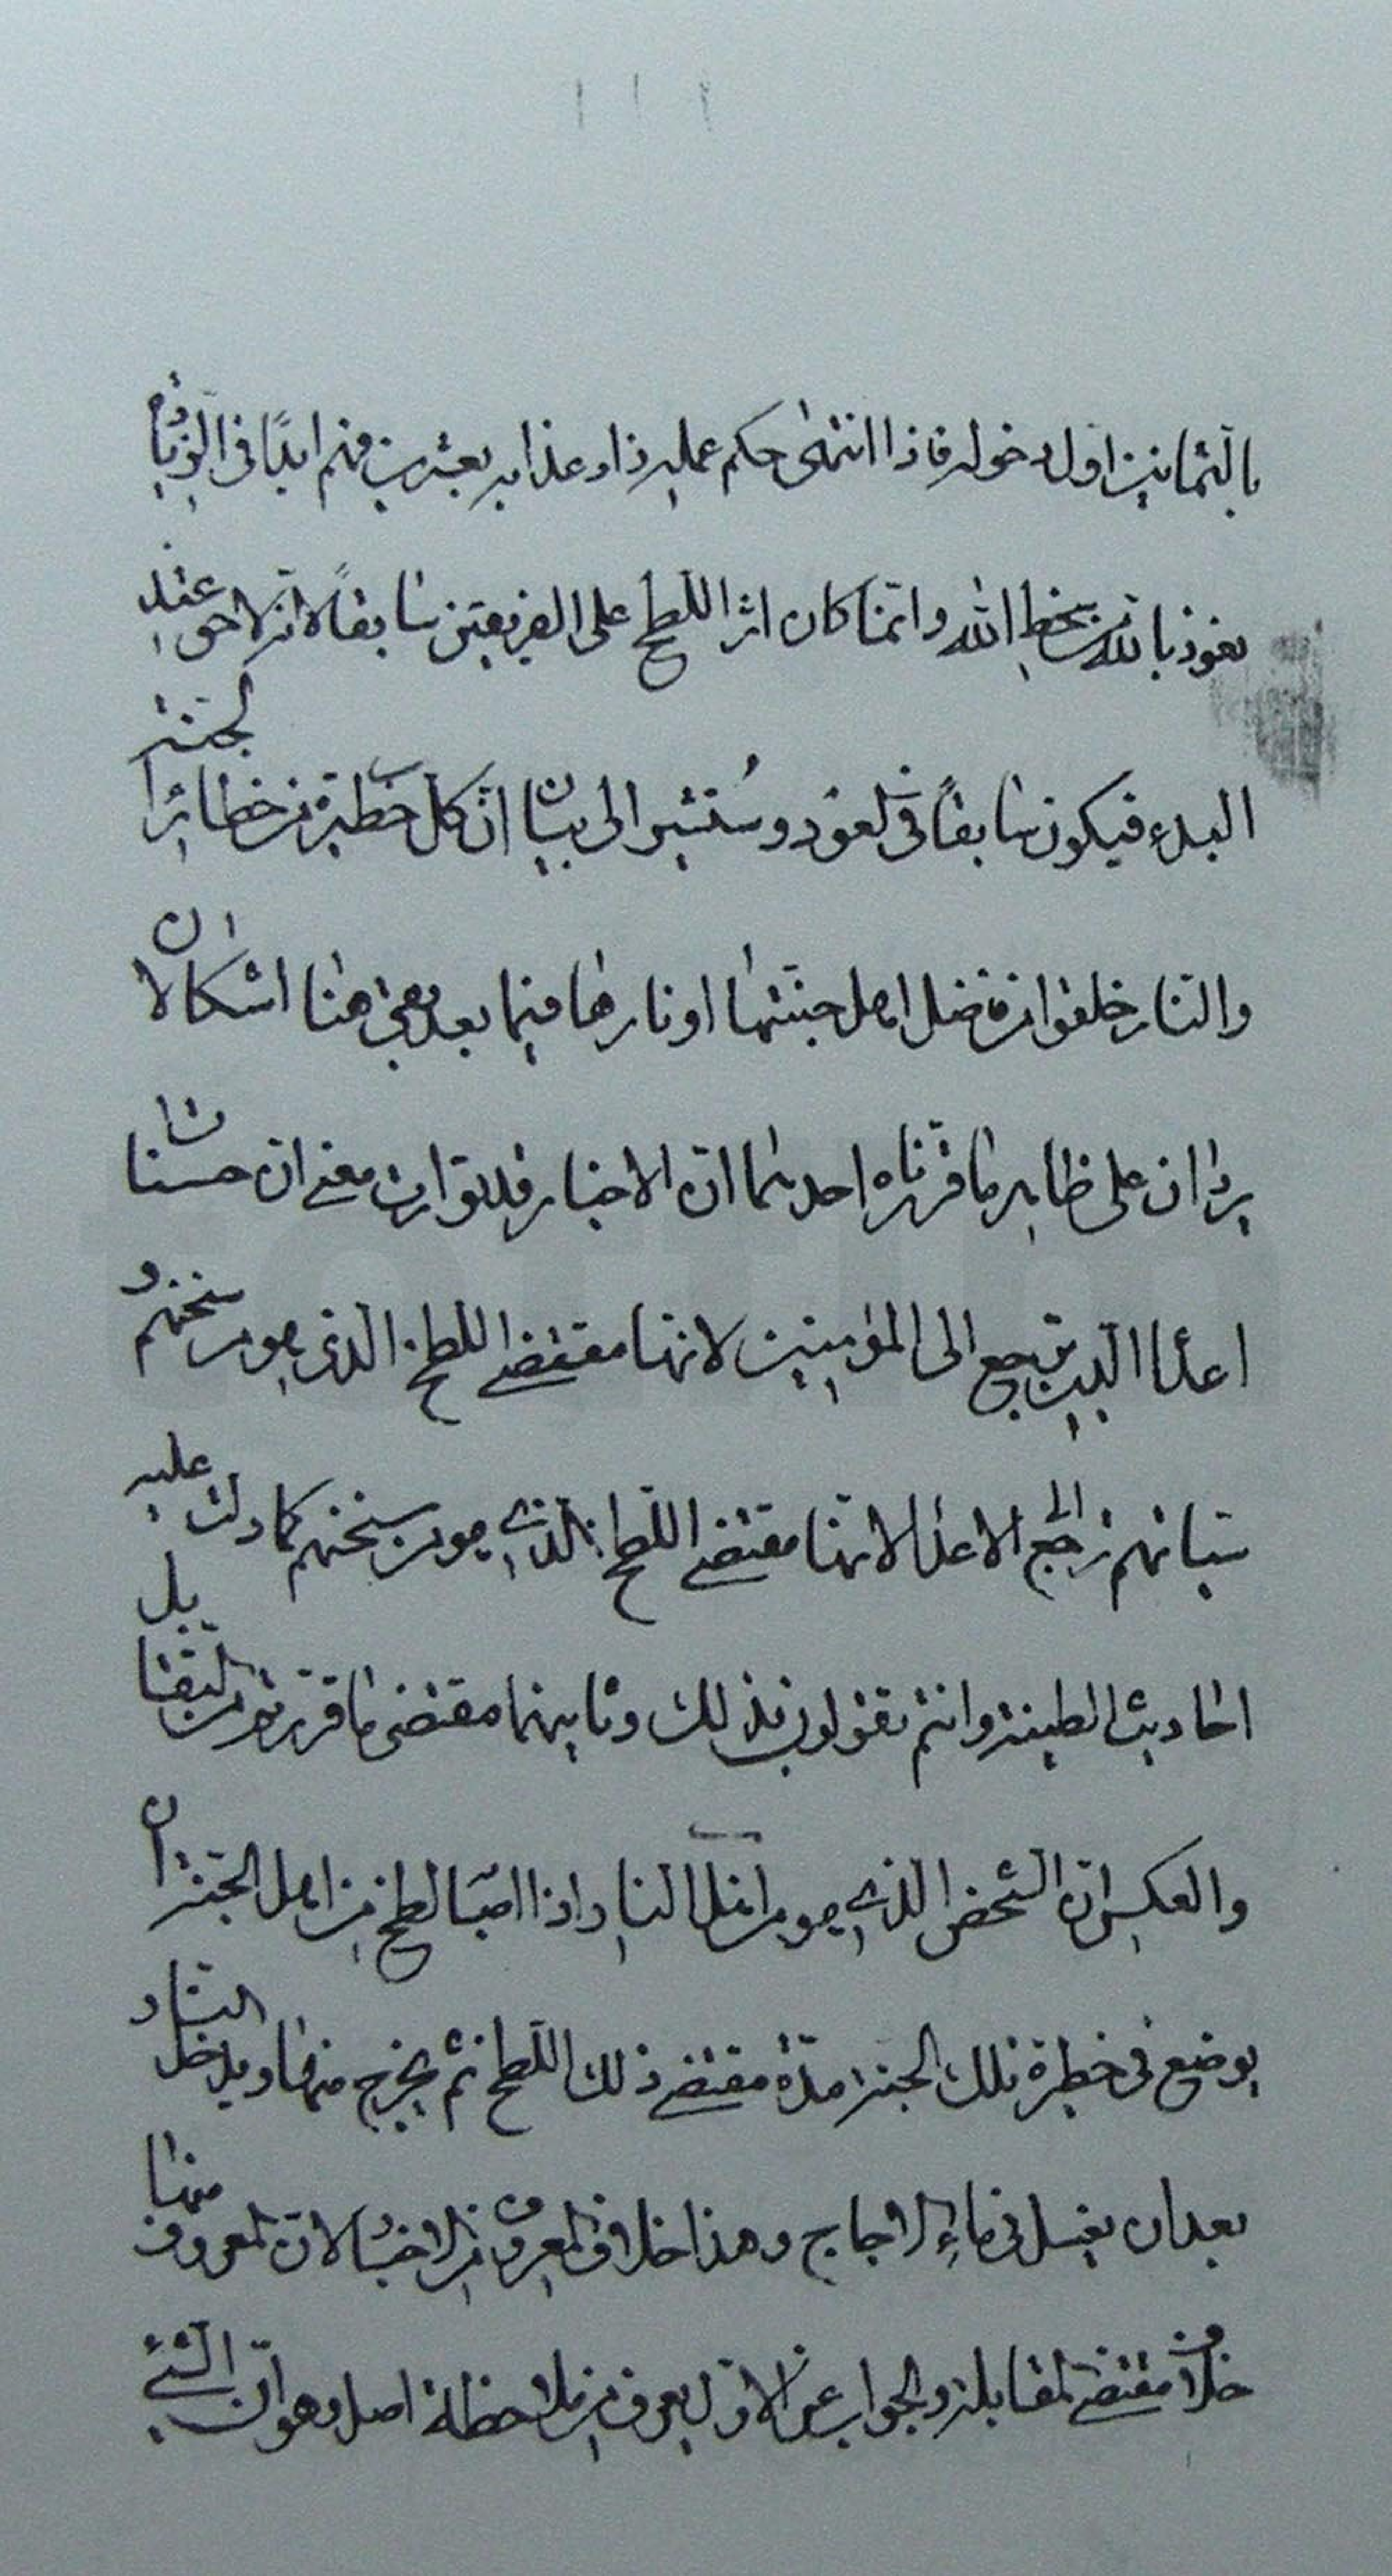 بالثمانين اول دخوله فاذا انتهى حكم عمله زاد عذابه بعشرين فهم ابدًا في الزيادة
نعوذ بالله من سخط الله وانما كان اثر اللطخ على الفريقين سابقاً لانه لاحق عند
البدء فيكون سابقاً في العود وسنشير الى بيان انّ كل حظيرة من حظاير الجنة
والنار خلقوا من فضل اهل جنتها او نارها فيما بعد بقى هنا اشكالان
يردان على ظاهر ما قررناه احدهما ان الاخبار قد تواردت معنى ان حسنات
اعداء الدين ترجع الى المؤمنين لانها مقتضى اللطخ الذى هو من سنخهم و
سيئاتهم ترجع الى الاعداء لانها مقتضى اللطخ الذي هو من سنخهم كما دلت عليه
احاديث الطينة وانتم تقولون بذلك وثانيهما مقتضى ما قررتموه من التقابل
والعكس ان الشخص الذي هو من اهل النار اذا اصابه لطخ من اهل الجنة ان
يوضع في حظيرة تلك الجنة مدّة مقتضى ذلك اللطخ ثم يخرج منها ويدخل النار
بعد ان يغسل في ماء الاجاج وهذا خلاف المعروف من الاخبار لان المعروف منها
خلاف مقتضى المقابلة والجواب عن الاول يعرف من ملاحظة اصل وهو ان الشيء